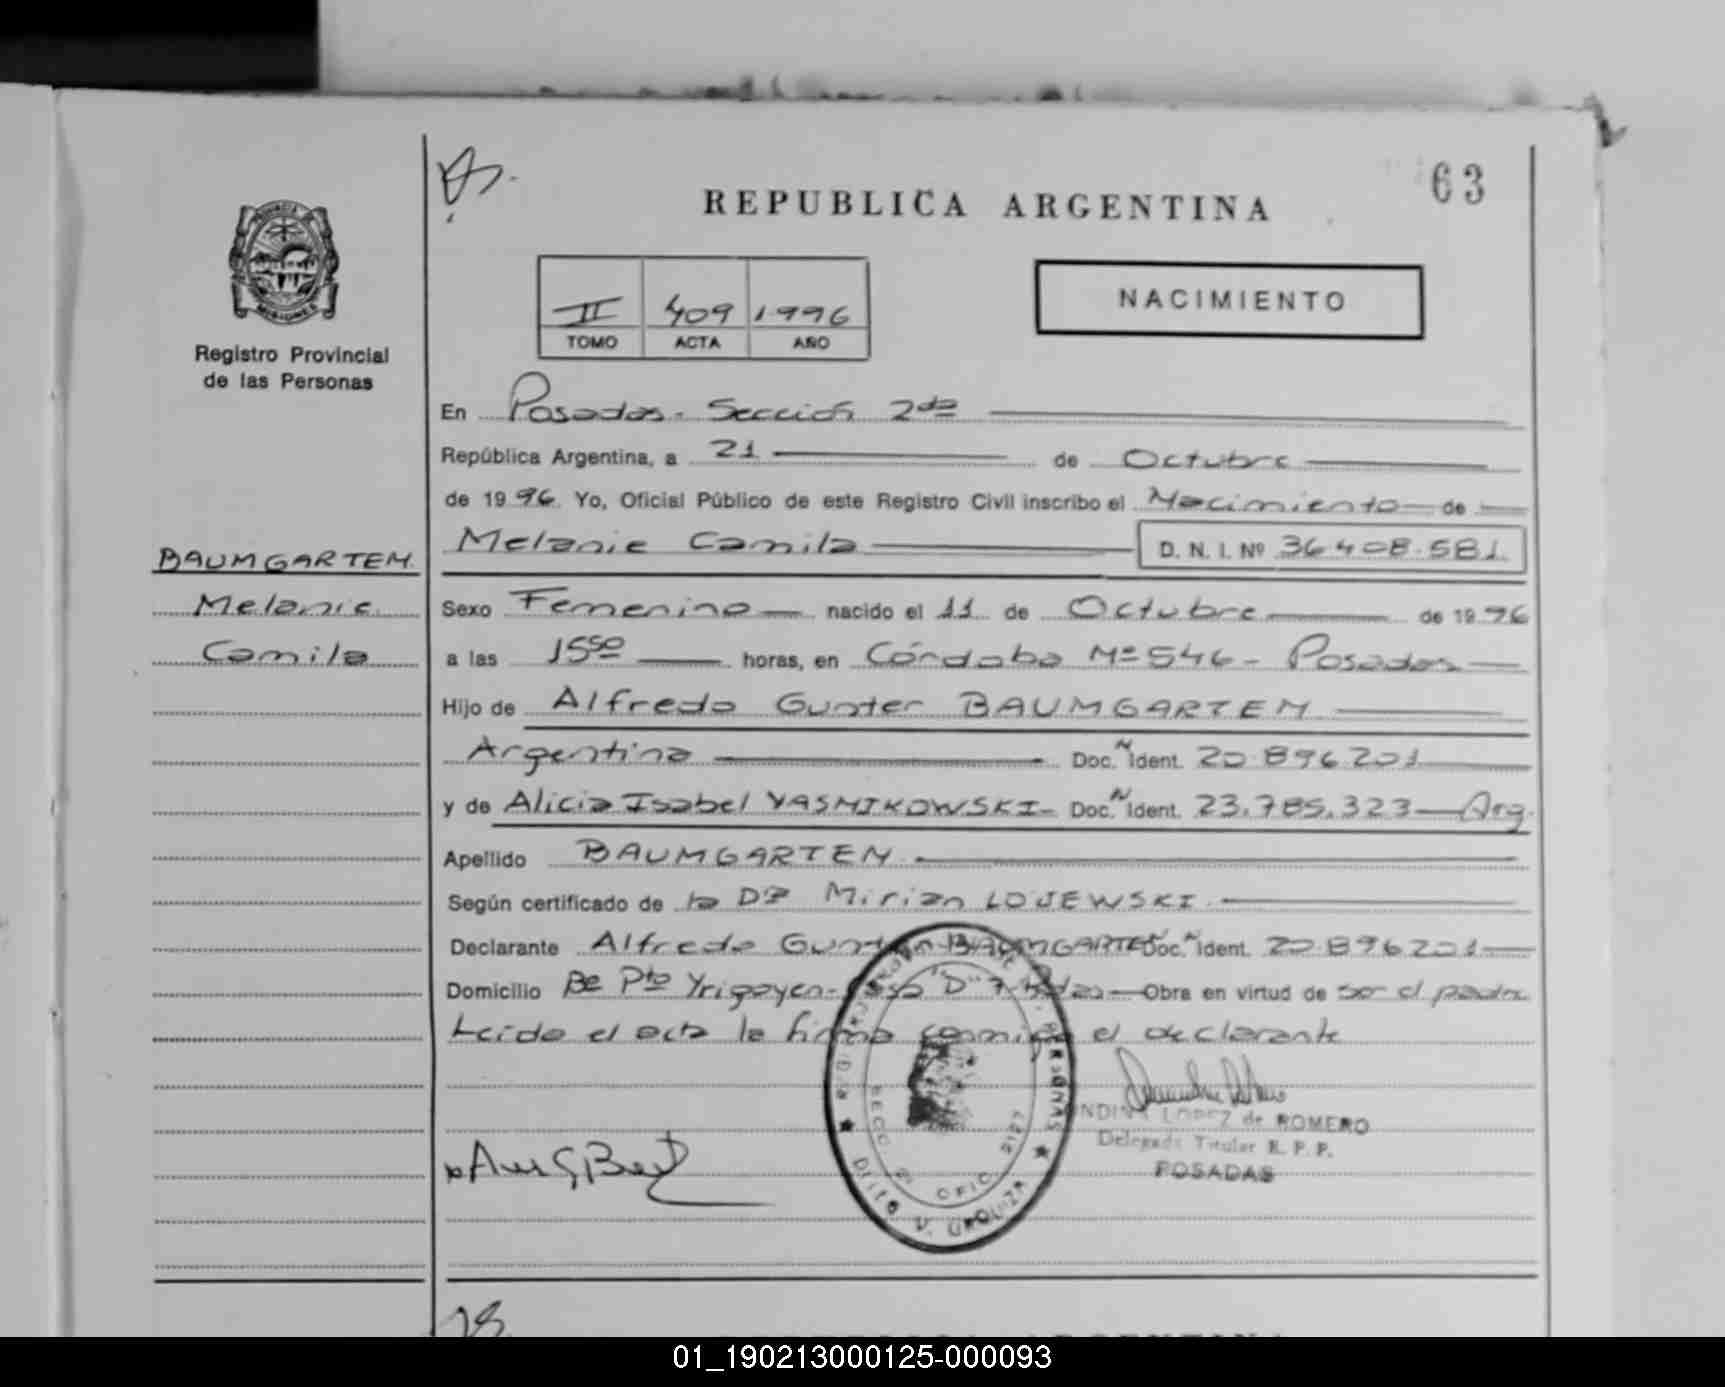 63
REPUBLICA ARGENTINA
PROVINCIA DE
MISIONES
Registro Provincial
de las Personas
II 409 1996
TOMO ACTA AÑO
NACIMIENTO
En Posadas - Sección 2da
República Argentina, a 21 de Octubre
de 1996. Yo, Oficial Público de este Registro Civil inscribo el Nacimiento de
BAUMGARTEN
Melanie
Camila
Melanie Camila D. N. I. Nº 36.408.581
Sexo Femenino nacido el 11 de Octubre de 1996
a las 15 50 horas, en Córdoba Nº 546 - Posadas
Hijo de Alfredo Gunter BAUMGARTEN
Argentina Doc. N Ident. 20.896.201
y de Alicia Isabel YASNIKOWSKI - Doc. N Ident. 23.785.323 Arg.
Apellido BAUMGARTEN
Según certificado de la Dra Mirian LOJEWSKI
Declarante Alfredo Gunter BAUMGARTEN Doc. N Ident. 20.896.201
Domicilio Be Pto Yrigoyen - Casa "D" 7 Pdas Obra en virtud de ser el padre
Leido el acta la firma conmigo el declarante
LOPEZ de ROMERO
Delegada Titular R. P. P.
POSADAS
PERSONAS
SECC 2ª OFIC
Dtto V. URQUIZA
01_190213000125-000093